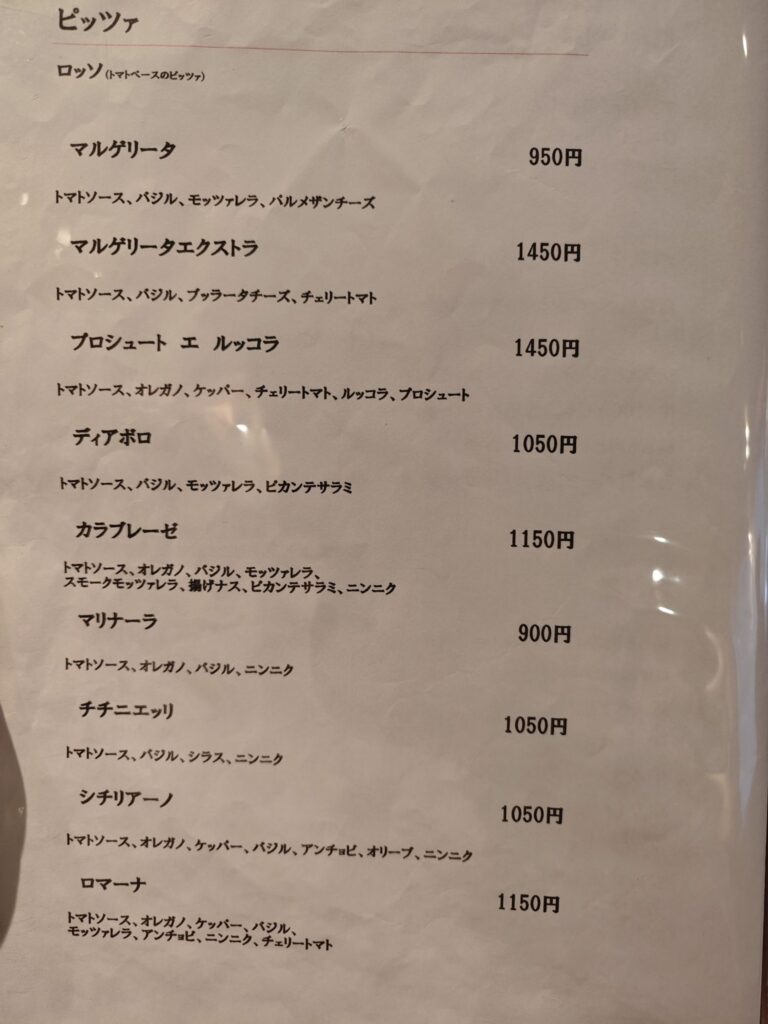 ピッツァ
ロッソ(トマトベースのピッツァ)
マルゲリータ 950円
トマトソース、バジル、モッツァレラ、パルメザンチーズ
マルゲリータエクストラ 1450円
トマトソース、バジル、ブッラータチーズ、チェリートマト
プロシュート エ ルッコラ 1450円
トマトソース、オレガノ、ケッパー、チェリートマト、ルッコラ、プロシュート
ディアボロ 1050円
トマトソース、バジル、モッツァレラ、ピカンテサラミ
カラブレーゼ 1150円
トマトソース、オレガノ、バジル、モッツァレラ、
スモークモッツァレラ、揚げナス、ピカンテサラミ、ニンニク
マリナーラ 900円
トマトソース、オレガノ、バジル、ニンニク
チチニエッリ 1050円
トマトソース、バジル、シラス、ニンニク
シチリアーノ 1050円
トマトソース、オレガノ、ケッパー、バジル、アンチョビ、オリーブ、ニンニク
ロマーナ 1150円
トマトソース、オレガノ、ケッパー、バジル、
モッツァレラ、アンチョビ、ニンニク、チェリートマト